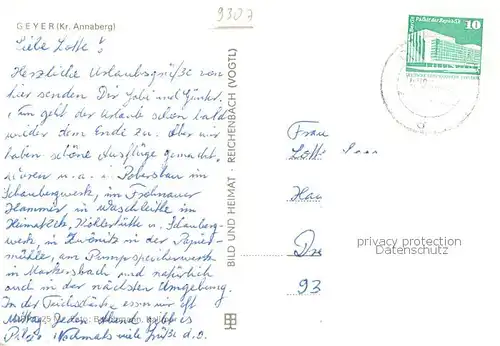 9307
GEYER (Kr. Annaberg)
Liebe Lotte!
Herzliche Urlaubsgrüße von
hier senden Dir Gabi und Günter.
Nun geht der Urlaub schon bald
wieder dem Ende zu. Aber wir
haben schöne Ausflüge gemacht,
waren u. a. i. Pobershau im
Schaubergwerk, im Frohnauer
Hammer, in Waschleithe im
Heimateck, Köhlerhütte u. Schauberg-
werk, in Zwönitz in der Papier-
mühle, am Pumpspeicherwerk
in Markersbach und natürlich
auch in der nächsten Umgebung.
In der Teichschänke essen wir oft
Mittag
Nochmals viele Grüße d. O.
BILD UND HEIMAT · REICHENBACH (VOGTL)
Berlin, Palast der Republik
10
Frau
Lotte
Hau
Dre
93
privacy protection
Datenschutz